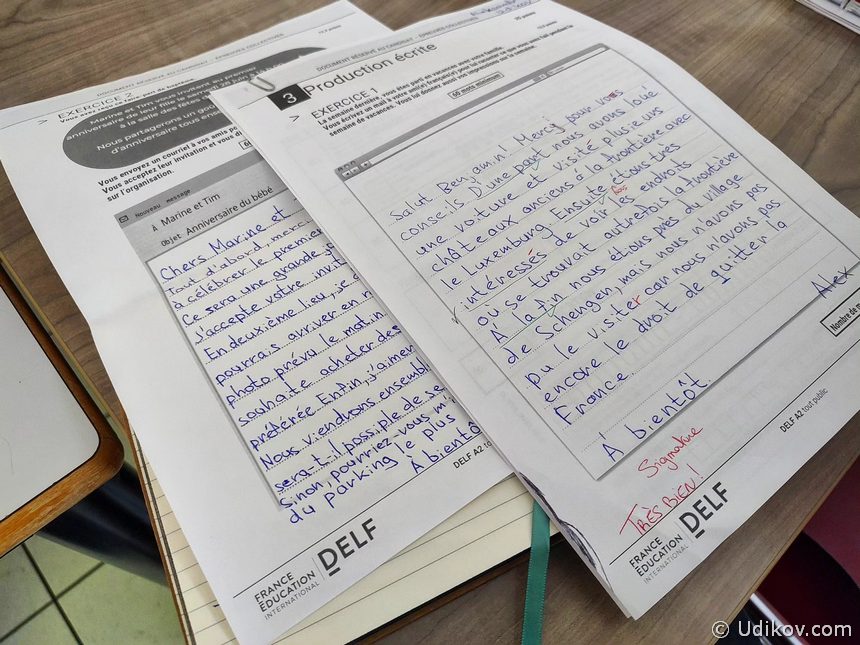 DOCUMENT RÉSERVÉ AU CANDIDAT – ÉPREUVES COLLECTIVES
EXERCICE 2
Marine et Tim vous invitent au premier
anniversaire de leur fille le
à la salle des fêtes
Nous partagerons un
d'anniversaire tous
Vous envoyez un courriel à vos amis
Vous acceptez leur invitation et vous
sur l'organisation.
Nouveau message
À Marine et Tim
Objet Anniversaire du bébé
Chers Marine et
Tout d'abord, merci
à célébrer le premier
Ce sera une grande
J'accepte votre
En deuxième lieu, je
pourrais arriver en
photo prévu le matin
souhaite acheter des
préférée Enfin, j'aimer
Nous viendrons ensembl
sera-t-il possible de
Sinon, pourriez-vous m'i
du parking le plus
À bientô
DELF A2 tout
FRANCE
ÉDUCATION
INTERNATIONAL
DELF
DOCUMENT RÉSERVÉ AU CANDIDAT – ÉPREUVES COLLECTIVES
3 Production écrite
> EXERCICE 1
La semaine dernière, vous êtes parti en vacances avec votre famille.
Vous écrivez un mail à votre ami(e) français(e) pour lui raconter ce que vous avez fait pendant la
semaine de vacances. Vous lui donnez aussi vos impressions sur la semaine.
60 mots minimum
Salut Benjamin! Merci pour vos
conseils D'une part nous avons loué
une voiture et visité plusieurs
châteaux anciens á la frontière avec
le Luxemburg Ensuite étions très
intéressés de voir les endroits
où se trouvait autrefois la frontière
À la fin nous étions près du village
de Schengen, mais nous n'avons pas
pu le visiter car nous n'avons pas
encore le droit de quitter la
France.
A bientôt.
Alex
Nombre de
Signature
TRÈS BIEN!
DELF A2 tout public
FRANCE
ÉDUCATION
INTERNATIONAL
DELF
© Udikov.com